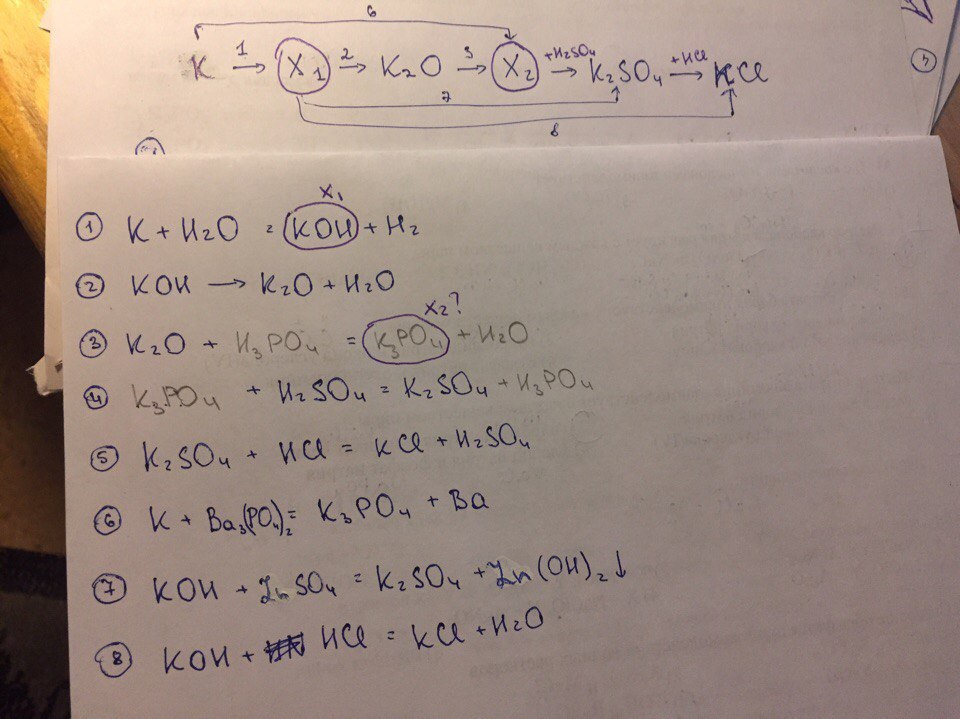 6
K 1→ X1 2→ K2O 3→ X2 +H2SO4→ K2SO4 +HCl→ KCl
7
8
X1
① K + H2O = KOH + H2
② KOH → K2O + H2O
X2?
③ K2O + H3PO4 = K3PO4 + H2O
④ K3PO4 + H2SO4 = K2SO4 + H3PO4
⑤ K2SO4 + HCl = KCl + H2SO4
⑥ K + Ba3(PO4)2 = K3PO4 + Ba
⑦ KOH + ZnSO4 = K2SO4 + Zn(OH)2↓
⑧ KOH + HCl = KCl + H2O